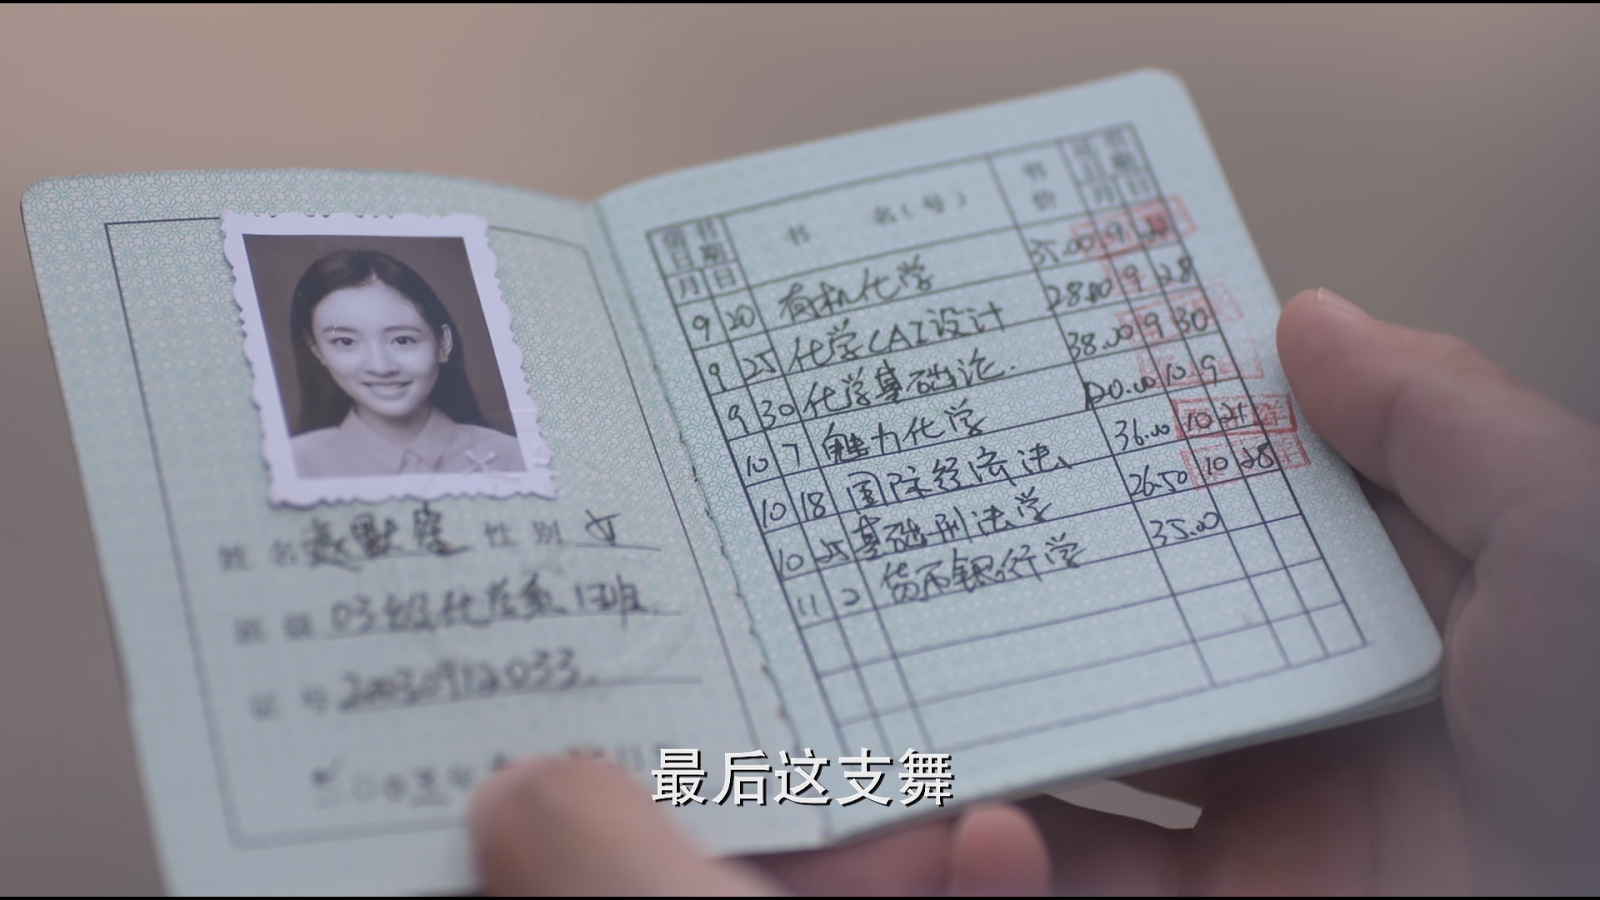 姓名赵默笙 性别 女
班级 03级化学系1班
证号 20030912033
借书日期 书 名(号) 书价 还书日期
月 日 月 日
9 20 有机化学 35.00 9 24
9 25 化学CAI设计 28.00 9 28
9 30 化学基础论 38.00 9 30
10 7 魅力化学 120.00 10 9
10 18 国际经济法 36.00 10 21
10 25 基础刑法学 26.50 10 28
11 2 货币银行学 35.00
最后这支舞